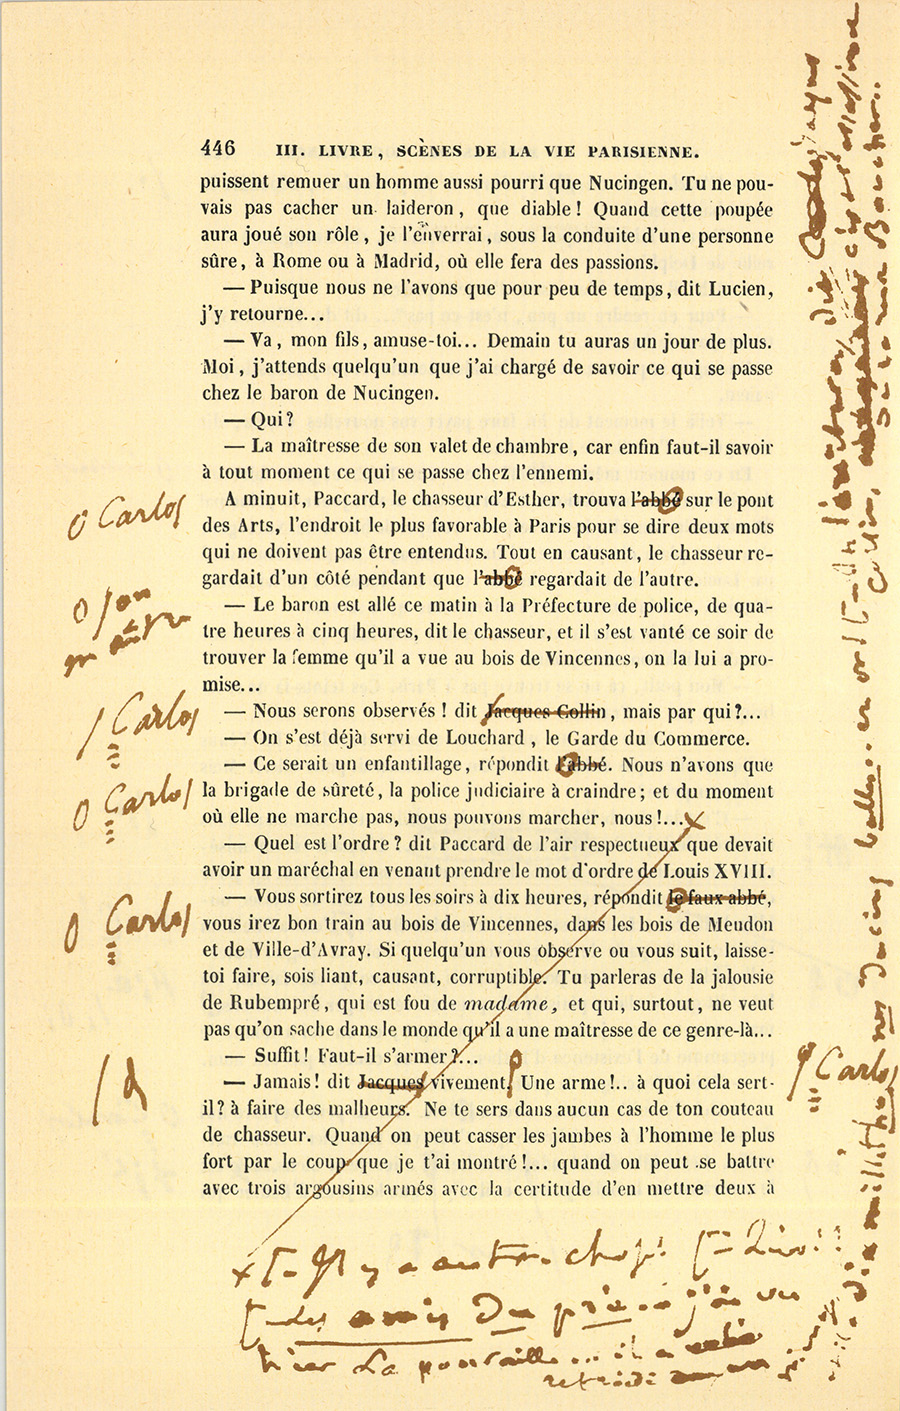 446 III. LIVRE, SCÈNES DE LA VIE PARISIENNE.
puissent remuer un homme aussi pourri que Nucingen. Tu ne pou-
vais pas cacher un laideron, que diable! Quand cette poupée
aura joué son rôle, je l'enverrai, sous la conduite d'une personne
sûre, à Rome ou à Madrid, où elle fera des passions.
— Puisque nous ne l'avons que pour peu de temps, dit Lucien,
j'y retourne...
— Va, mon fils, amuse-toi... Demain tu auras un jour de plus.
Moi, j'attends quelqu'un que j'ai chargé de savoir ce qui se passe
chez le baron de Nucingen.
— Qui?
— La maîtresse de son valet de chambre, car enfin faut-il savoir
à tout moment ce qui se passe chez l'ennemi.
A minuit, Paccard, le chasseur d'Esther, trouva l'abbé sur le pont
des Arts, l'endroit le plus favorable à Paris pour se dire deux mots
qui ne doivent pas être entendus. Tout en causant, le chasseur re-
gardait d'un côté pendant que l'abbé regardait de l'autre.
— Le baron est allé ce matin à la Préfecture de police, de qua-
tre heures à cinq heures, dit le chasseur, et il s'est vanté ce soir de
trouver la femme qu'il a vue au bois de Vincennes, on la lui a pro-
mise...
— Nous serons observés! dit Jacques Collin, mais par qui?...
— On s'est déjà servi de Louchard, le Garde du Commerce.
— Ce serait un enfantillage, répondit l'abbé. Nous n'avons que
la brigade de sûreté, la police judiciaire à craindre; et du moment
où elle ne marche pas, nous pouvons marcher, nous!...
— Quel est l'ordre? dit Paccard de l'air respectueux que devait
avoir un maréchal en venant prendre le mot d'ordre de Louis XVIII.
— Vous sortirez tous les soirs à dix heures, répondit le faux abbé,
vous irez bon train au bois de Vincennes, dans les bois de Meudon
et de Ville-d'Avray. Si quelqu'un vous observe ou vous suit, laisse-
toi faire, sois liant, causant, corruptible. Tu parleras de la jalousie
de Rubempré, qui est fou de madame, et qui, surtout, ne veut
pas qu'on sache dans le monde qu'il a une maîtresse de ce genre-là...
— Suffit! Faut-il s'armer?...
— Jamais! dit Jacques vivement. Une arme!.. à quoi cela sert-
il? à faire des malheurs. Ne te sers dans aucun cas de ton couteau
de chasseur. Quand on peut casser les jambes à l'homme le plus
fort par le coup que je t'ai montré!... quand on peut se battre
avec trois argousins armés avec la certitude d'en mettre deux à
Carlos
Carlos
Carlos
Carlos
Carlos
Il y a autre chose!
des amis du pré... j'ai vu
hier La pouraille... il a
refroidi